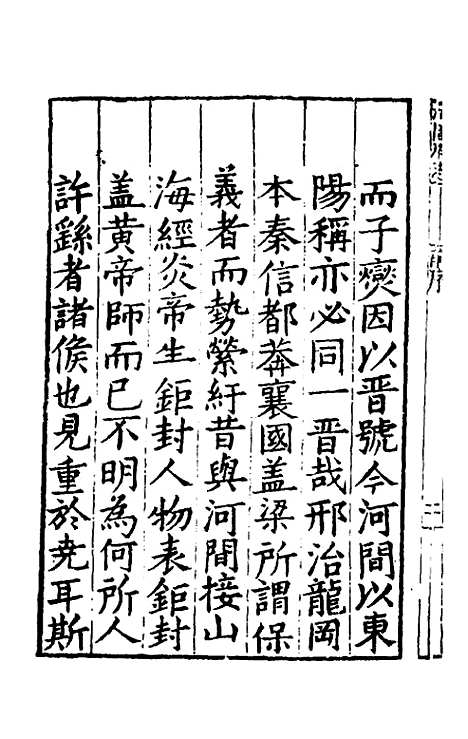 而子爕因以晋號今河間以東
陽稱亦必同一晋哉邢治龍岡
本秦信都莽襄國盖梁所謂保
義者而勢縈紆昔與河間接山
海經炎帝生鉅封人物表鉅封
盖黄帝師而已不明為何所人
許繇者諸侯也見重於尭耳斯